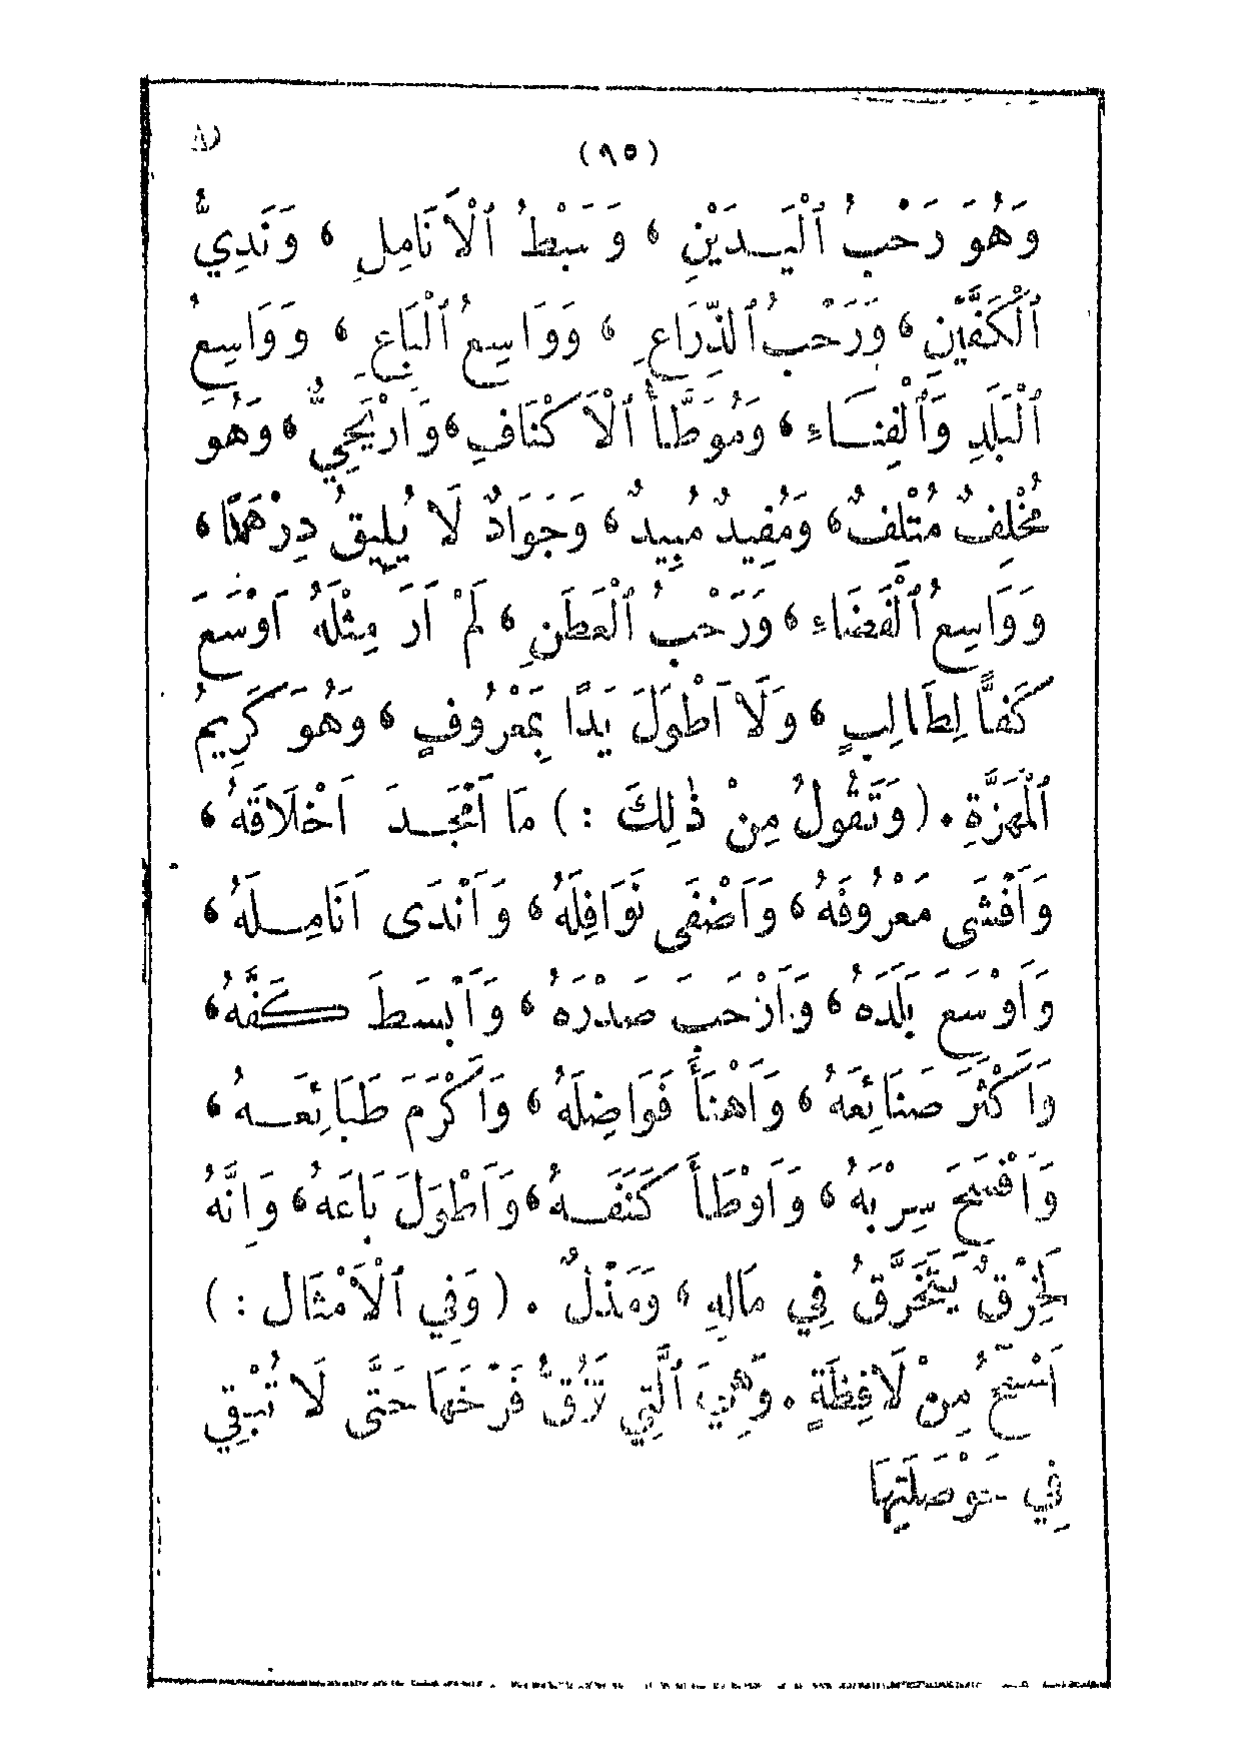 (٩٥)
وَهُوَ رَحْبُ ٱلْيَدَيْنِ ، وَسَبْطُ ٱلْأَنَامِلِ ، وَنَدِيُّ
ٱلْكَفَّيْنِ ، وَرَحْبُ ٱلذِّرَاعِ ، وَوَاسِعُ ٱلْبَاعِ ، وَوَاسِعُ
ٱلْبَلَدِ وَٱلْفِنَاءِ ، وَمُوَطَّأُ ٱلْأَكْنَافِ ، وَأَرْيَحِيٌّ ، وَهُوَ
مُخْلِفٌ مُتْلِفٌ ، وَمُفِيدٌ مُبِيدٌ ، وَجَوَادٌ لَا يُلِيقُ دِرْهَمًا ،
وَوَاسِعُ ٱلْفَضَاءِ ، وَرَحْبُ ٱلْعَطَنِ ، لَمْ أَرَ مِثْلَهُ أَوْسَعَ
كَفًّا لِطَالِبٍ ، وَلَا أَطْوَلَ يَدًا بِمَعْرُوفٍ ، وَهُوَ كَرِيمُ
ٱلْمَهَزَّةِ . (وَتَقُولُ مِنْ ذٰلِكَ :) مَا أَمْجَدَ أَخْلَاقَهُ ،
وَأَفْشَى مَعْرُوفَهُ ، وَأَضْفَى نَوَافِلَهُ ، وَأَنْدَى أَنَامِلَهُ ،
وَأَوْسَعَ بَلَدَهُ ، وَأَرْحَبَ صَدْرَهُ ، وَأَبْسَطَ كَفَّهُ ،
وَأَكْثَرَ صَنَائِعَهُ ، وَأَهْنَأَ فَوَاضِلَهُ ، وَأَكْرَمَ طَبَائِعَهُ ،
وَأَفْسَحَ سِرْبَهُ ، وَأَوْطَأَ كَنَفَهُ ، وَأَطْوَلَ بَاعَهُ ، وَإِنَّهُ
لَخِرْقٌ يَتَخَرَّقُ فِي مَالِهِ ، وَمَذِلٌ . (وَفِي ٱلْأَمْثَالِ :)
أَسْمَحُ مِنْ لَافِظَةٍ . وَهِيَ ٱلَّتِي تَزُقُّ فَرْخَهَا حَتَّى لَا تُبْقِي
فِي حَوْصَلَتِهَا